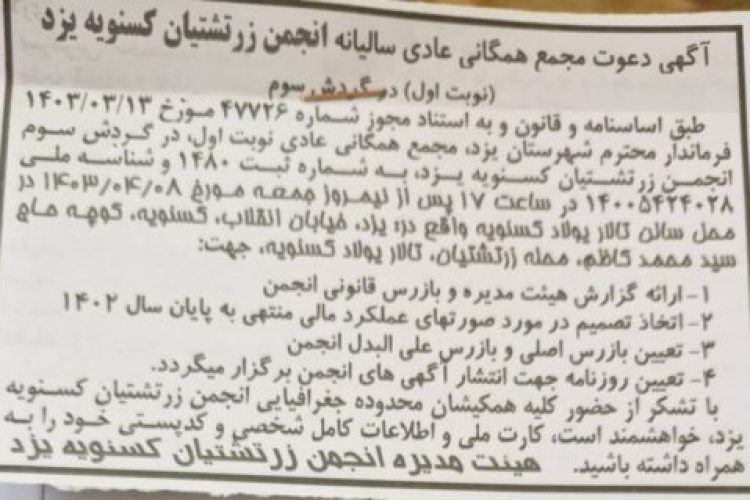 آگهی دعوت مجمع همگانی عادی سالیانه انجمن زرتشتیان کسنویه یزد
(نوبت اول) در گردش سوم
طبق اساسنامه و قانون و به استناد مجوز شماره ۴۷۷۲۶ موزخ ۱۴۰۳/۰۳/۱۳
فرماندار محترم شهرستان یزد، مجمع همگانی عادی نوبت اول، در گردش سوم
انجمن زرتشتیان کسنویه یزد، به شماره ثبت ۱۴۸۰ و شناسه ملی
۱۴۰۰۵۴۲۴۰۲۸ در ساعت ۱۷ پس از نیمروز جمعه مورخ ۱۴۰۳/۰۴/۰۸ در
محل سالن تالار پولاد کسنویه واقع در: یزد، خیابان انقلاب، کسنویه، کوچه حاج
سید محمد کاظم، محله زرتشتیان، تالار پولاد کسنویه، جهت:
۱- ارائه گزارش هیئت مدیره و بازرس قانونی انجمن
۲- اتخاذ تصمیم در مورد صورتهای عملکرد مالی منتهی به پایان سال ۱۴۰۲
۳- تعیین بازرس اصلی و بازرس علی البدل انجمن
۴- تعیین روزنامه جهت انتشار آگهی های انجمن برگزار میگردد.
با تشکر از حضور کلیه همکیشان محدوده جغرافیایی انجمن زرتشتیان کسنویه
یزد، خواهشمند است، کارت ملی و اطلاعات کامل شخصی و کدپستی خود را به
همراه داشته باشید. هیئت مدیره انجمن زرتشتیان کسنویه یزد